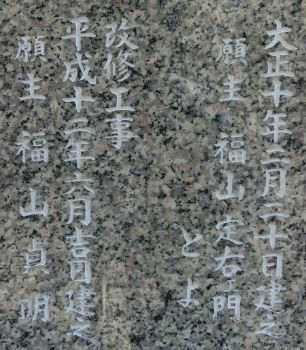 大正十年二月二十日建之
願主 福山定右門
とよ
改修工事
平成十二年六月吉日建之
願主 福山貞明